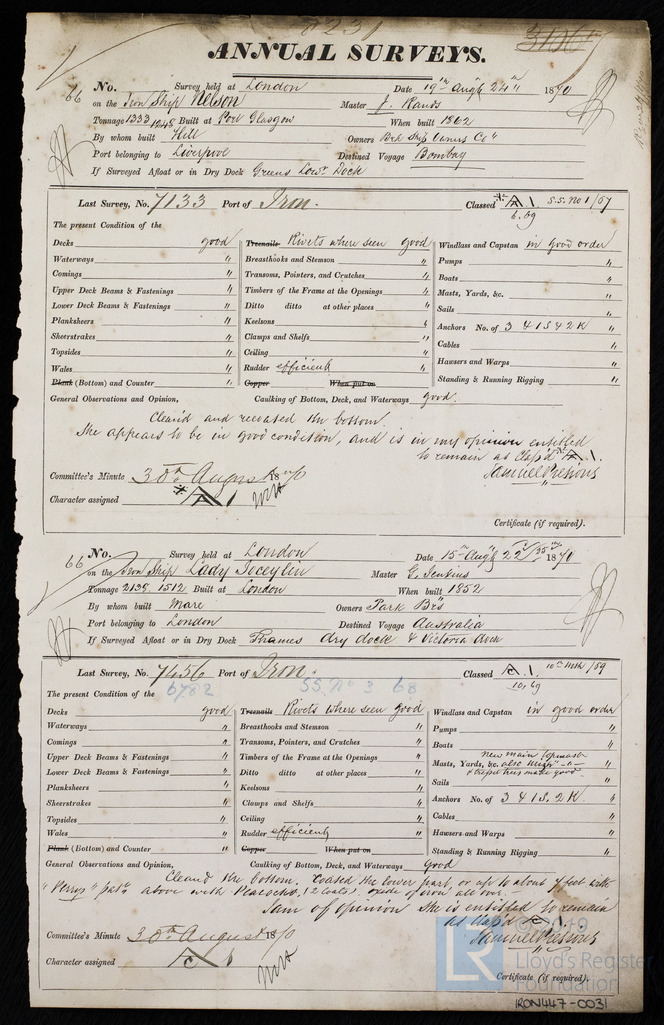 7231
ANNUAL SURVEYS.
66 No. Survey held at London Date 19th Augt & 24th 1870
on the Iron Ship Nelson Master J. Rands
Tonnage 1333 1248 Built at Port Glasgow When built 1862
By whom built Hill Owners Brk Ship Owners Coy
Port belonging to Liverpool Destined Voyage Bombay
If Surveyed Afloat or in Dry Dock Greens Lowr Dock
Last Survey, No. 7133 Port of Iron. Classed A 1 S.S. No 1/67
6.69
The present Condition of the
Decks good Treenails Rivets where seen good Windlass and Capstan in good order
Waterways " Breasthooks and Stemson " Pumps "
Comings " Transoms, Pointers, and Crutches " Boats "
Upper Deck Beams & Fastenings " Timbers of the Frame at the Openings " Masts, Yards, &c. "
Lower Deck Beams & Fastenings " Ditto ditto at other places " Sails "
Planksheers " Keelsons " Anchors No. of 3 4 1 S 4 2 K "
Sheerstrakes " Clamps and Shelfs " Cables "
Topsides " Ceiling " Hawsers and Warps "
Wales " Rudder efficient Standing & Running Rigging "
Plank (Bottom) and Counter " Copper When put on
General Observations and Opinion, Caulking of Bottom, Deck, and Waterways good.
Cleaned and recoated the bottom.
She appears to be in good condition, and is in my opinion entitled
to remain as Clas'd A.1.
Samuel Pretious
Committee's Minute 30th August 1870
Character assigned A 1
Certificate (if required).
66 No. Survey held at London Date 15th Augt & 22d/25th 1870
on the Iron Ship Lady Joceylin Master G. Jenkins
Tonnage 2138 1512 Built at London When built 1852
By whom built Mare Owners Park Brs
Port belonging to London Destined Voyage Australia
If Surveyed Afloat or in Dry Dock Thames dry dock & Victoria dock
Last Survey, No. 7456 Port of Iron. Classed A.1. 10th Mth/59
10.69
6782 SS. No 3 68
The present Condition of the
Decks good Treenails Rivets where seen good Windlass and Capstan in good order
Waterways " Breasthooks and Stemson " Pumps "
Comings " Transoms, Pointers, and Crutches " Boats "
Upper Deck Beams & Fastenings " Timbers of the Frame at the Openings " Masts, Yards, &c. new main topmast
Lower Deck Beams & Fastenings " Ditto ditto at other places " Sails "
Planksheers " Keelsons " Anchors No. of 3 4 1 S. 2 K "
Sheerstrakes " Clamps and Shelfs " Cables "
Topsides " Ceiling " Hawsers and Warps "
Wales " Rudder efficient Standing & Running Rigging "
Plank (Bottom) and Counter " Copper When put on
General Observations and Opinion, Caulking of Bottom, Deck, and Waterways good
Cleaned the bottom. Coated the lower part or up to about 7 feet with
patt above with Peacocks, (2 coats), oxide of iron all over.
I am of opinion she is entitled to remain
as Clas'd A.1.
Samuel Pretious
Committee's Minute 30th August 1870
Character assigned A 1
Certificate (if required).
© 2019
LR Lloyd's Register
Foundation
IRON447-0031